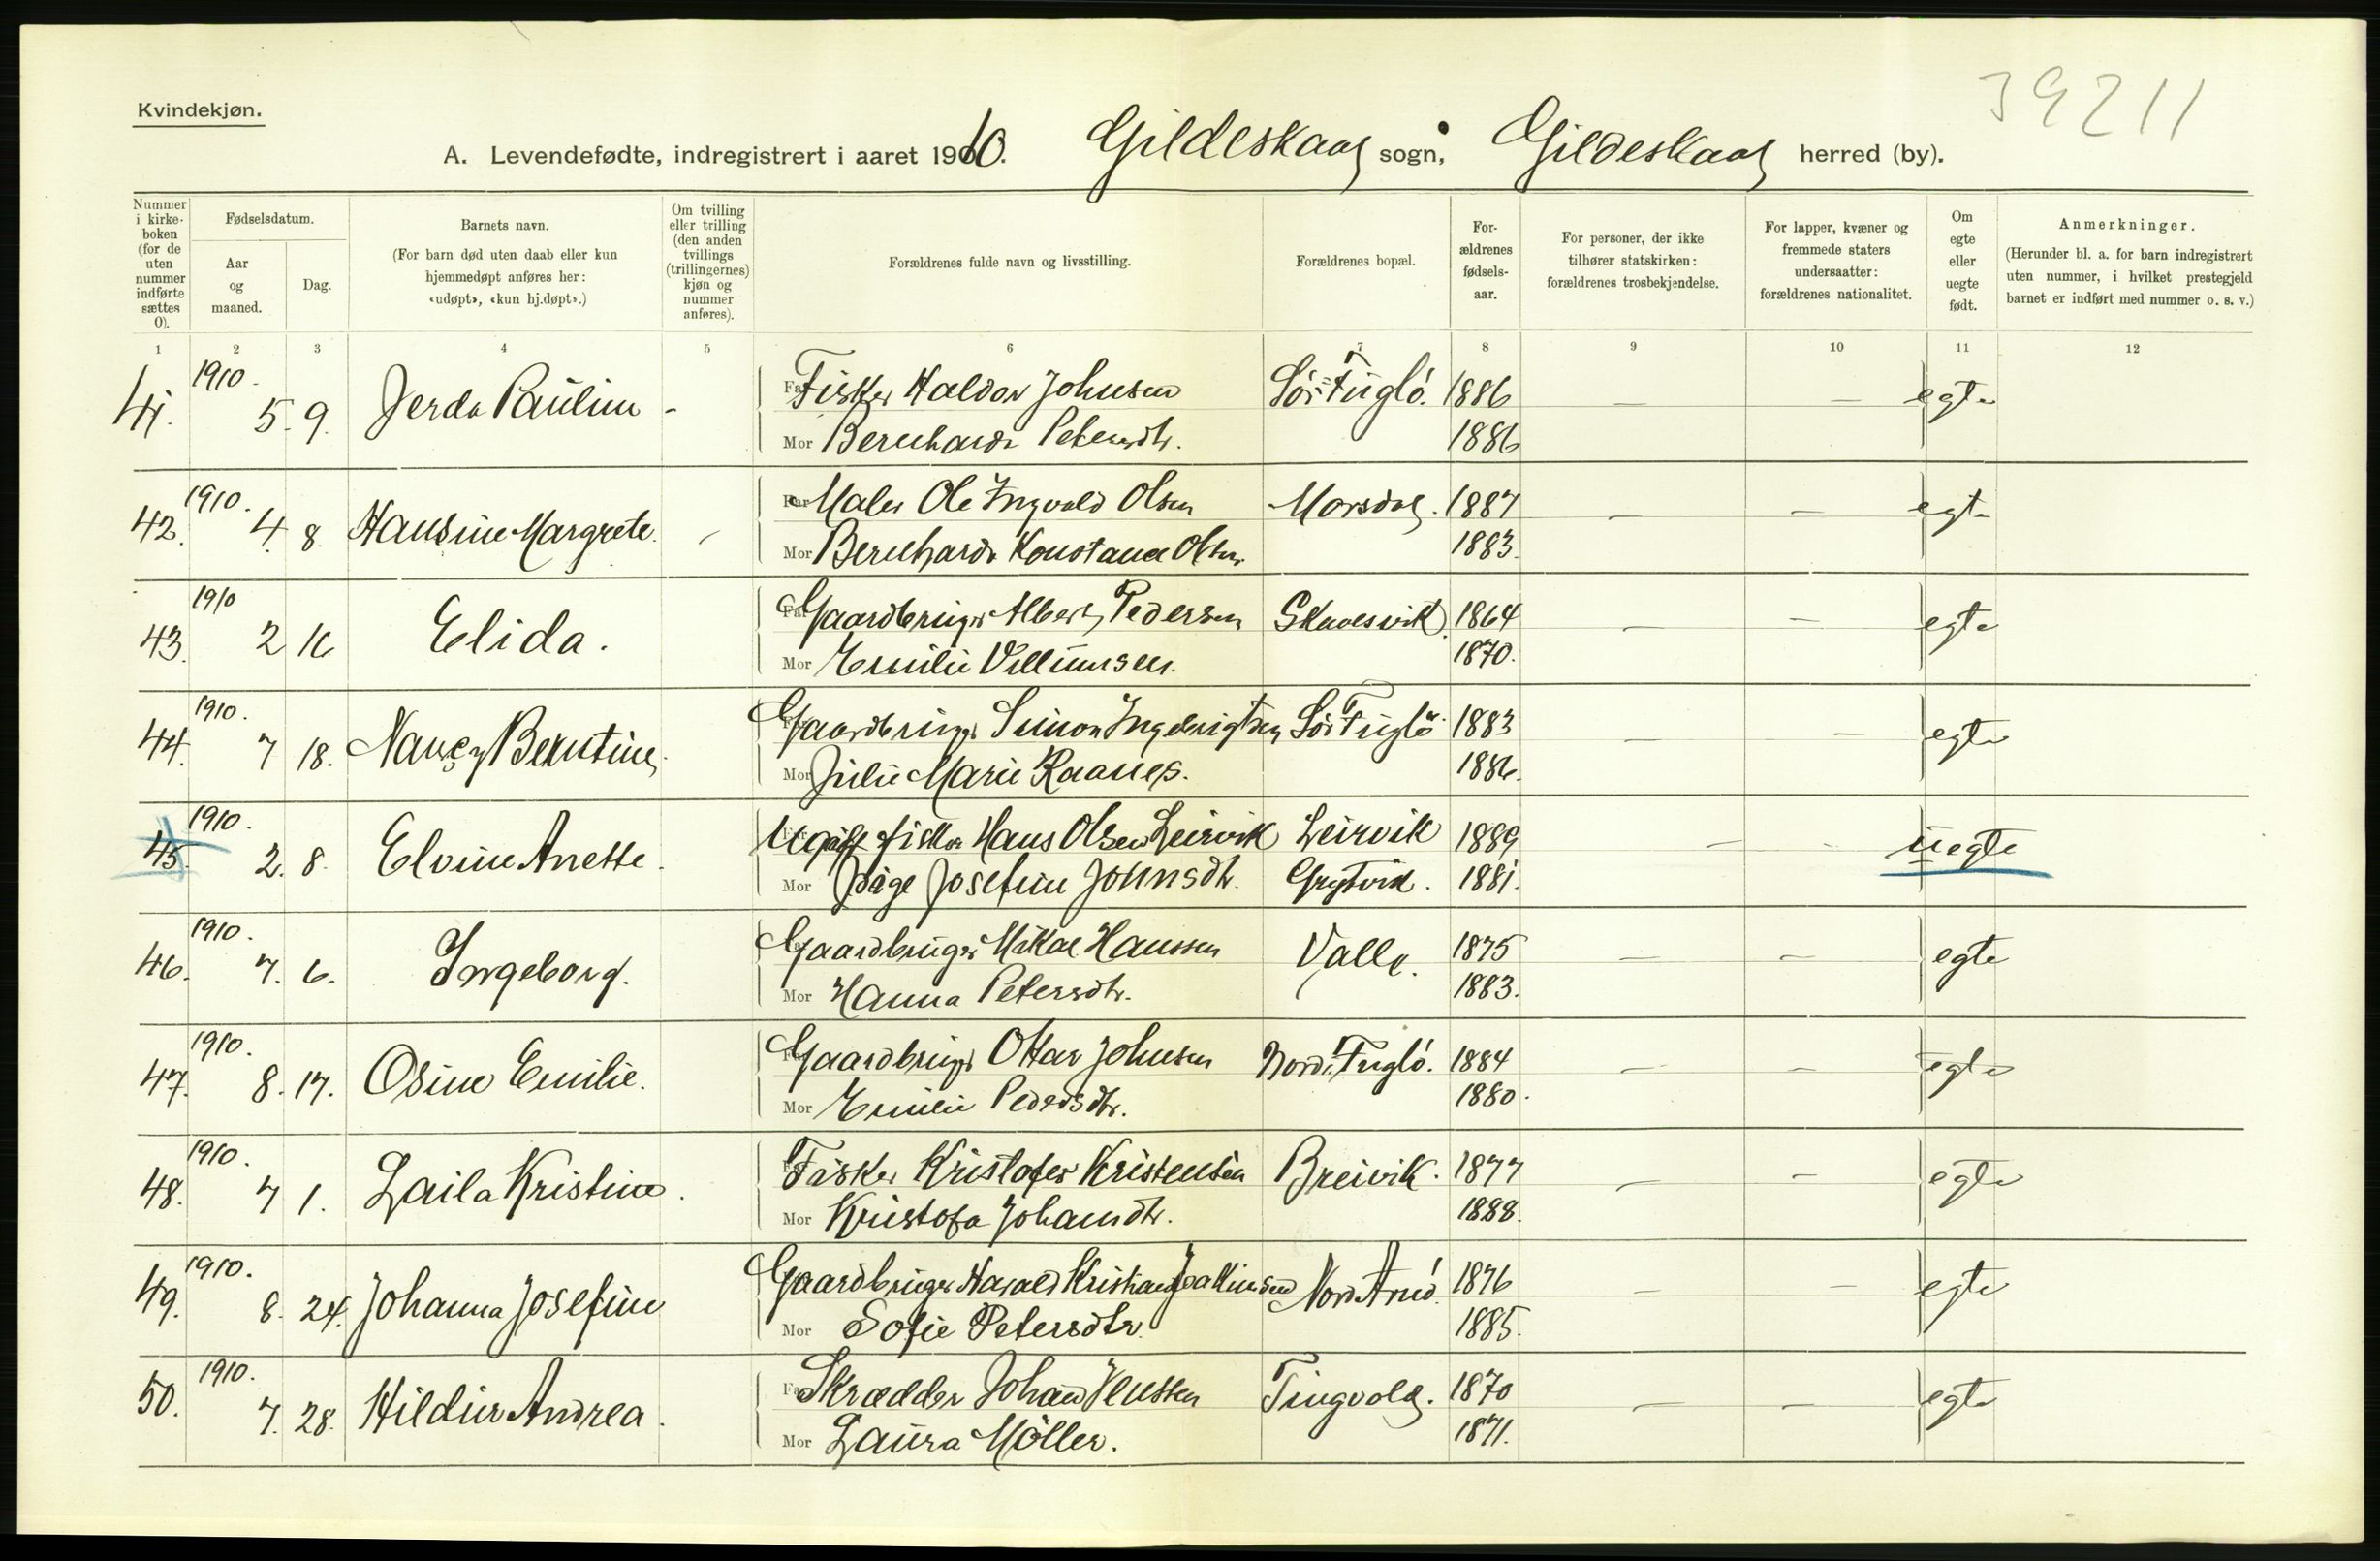 39211
Kvindekjøn.
A. Levendefødte, indregistrert i aaret 1910. Gildeskaal sogn, Gildeskaal herred (by).
Nummer i kirke-boken (for de uten nummer indførte sættes 0).
Fødselsdatum.
Aar og maaned.
Dag.
Barnets navn.
(For barn død uten daab eller kun hjemmedøpt anføres her: «udøpt», «kun hj.døpt».)
Om tvilling eller trilling (den anden tvillings (trillingernes) kjøn og nummer anføres).
Forældrenes fulde navn og livsstilling.
Forældrenes bopæl.
For-ældrenes fødsels-aar.
For personer, der ikke tilhører statskirken: forældrenes trosbekjendelse.
For lapper, kvæner og fremmede staters undersaatter: forældrenes nationalitet.
Om egte eller uegte født.
Anmerkninger.
(Herunder bl. a. for barn indregistrert uten nummer, i hvilket prestegjeld barnet er indført med nummer o. s. v.)
1 2 3 4 5 6 7 8 9 10 11 12
41. 1910. 5. 9. Jerda Pauline - Far Fisker Haldor Johnsen Sør-Fuglø. 1886 — — egte
Mor Bernharda Petersdtr. 1886
42. 1910. 4. 8. Hansine Margrete. - Far Maler Ole Ingvald Olsen Morsdal. 1887 — — egte
Mor Bernharda Konstance Olsen 1883.
43. 1910 2 16 Elida. Far Gaardbruger Albert Pedersen Skavesvik. 1864 — — egte
Mor Emilie Villumsen. 1870.
44. 1910. 7 18. Nancy Berntine. Far Gaardbruger Simon Ingebrigtsen Sør Fuglø 1883 — — egte
Mor Julie Marie Raanes. 1886.
45. 1910. 2. 8. Elvine Anette. Far Ugift fisker Hans Olsen Leirvik Leirvik 1889 — - uegte
Mor Pige Josefine Johnsdtr. Grytvik. 1881.
46. 1910. 7. 6. Ingeborg. Far Gaardbruger Mikal Hanssen Valle. 1875 — — egte
Mor Hanna Petersdtr. 1883.
47. 1910. 8. 17. Osine Emilie. Far Gaardbruger Ottar Johnsen Nord-Fuglø. 1884 — — egte
Mor Emilie Pedersdtr. 1880.
48. 1910. 7 1. Laila Kristine. Far Fisker Kristofer Kristensen Breivik. 1877 — — egte
Mor Kristofa Johansdtr. 1888.
49. 1910. 8. 24. Johanna Josefine Far Gaardbruger Harald Kristian Joakimsen Nord Arnø. 1876 — — egte
Mor Sofie Petersdtr. 1885.
50. 1910. 7. 28. Hildur Andrea. Far Skrædder Johan Jenssen Tingvold. 1870 — — egte
Mor Laura Möller. 1871.